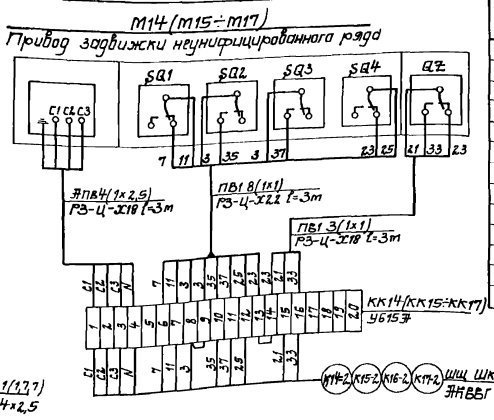 М14 (М15÷М17)
Привод задвижки неунифицированного ряда
SQ1 SQ2 SQ3 SQ4 QZ
C1 C2 C3
7 11 3 35 3 37 23 25 21 33 23
АПВ4(1×2,5)
РЗ-Ц-Х18 ℓ=3м
ПВ1 8(1×1)
РЗ-Ц-Х22 ℓ=3м
ПВ1 3(1×1)
РЗ-Ц-Х18 ℓ=3м
C1 C2 C3 N 7 11 3 3 35 37 25 23 23 21 33
1 2 3 4 5 6 7 8 9 10 11 12 13 14 15 16 17 18 19 20
КК14(КК15÷КК17)
У615А
C1 C2 C3 N 7 11 3 35 37 25 21 33
К14-2 К15-2 К16-2 К17-2
ШЩ ШК
АКВВГ
1(1,7,7)
4×2,5